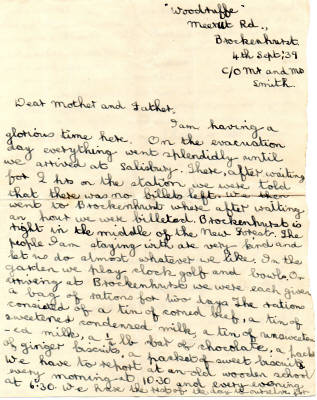 "Woodruffe"
Meerut Rd.,
Brockenhurst.
4th Sept; 39
C/O Mr and Mrs
Smith.
Dear Mother and Father,
I am having a
glorious time here. On the evacuation
day everything went splendidly until
we arrived at Salisbury. There, after waiting
for 2 hrs on the station we were told
that there was no billets left. We then
went to Brockenhurst where after waiting
an hour we were billeted. Brockenhurst is
right in the middle of the New Forest. The
people I am staying with are very kind and
let us do almost whatever we like. In the
garden we play clock golf and bowls. On
arriving at Brockenhurst we were each given
a bag of rations for two days. The rations
consisted of a tin of corned beef, a tin of
sweetened condensed milk, a tin of unsweeten
-ed milk, a ½ lb bar of chocolate, a packet
of ginger biscuits, a packet of sweet biscuits
We have to report at an old wooden school
every morning at 10.30 and every evening
at 6.30. We have the rest of the day to ourselves for